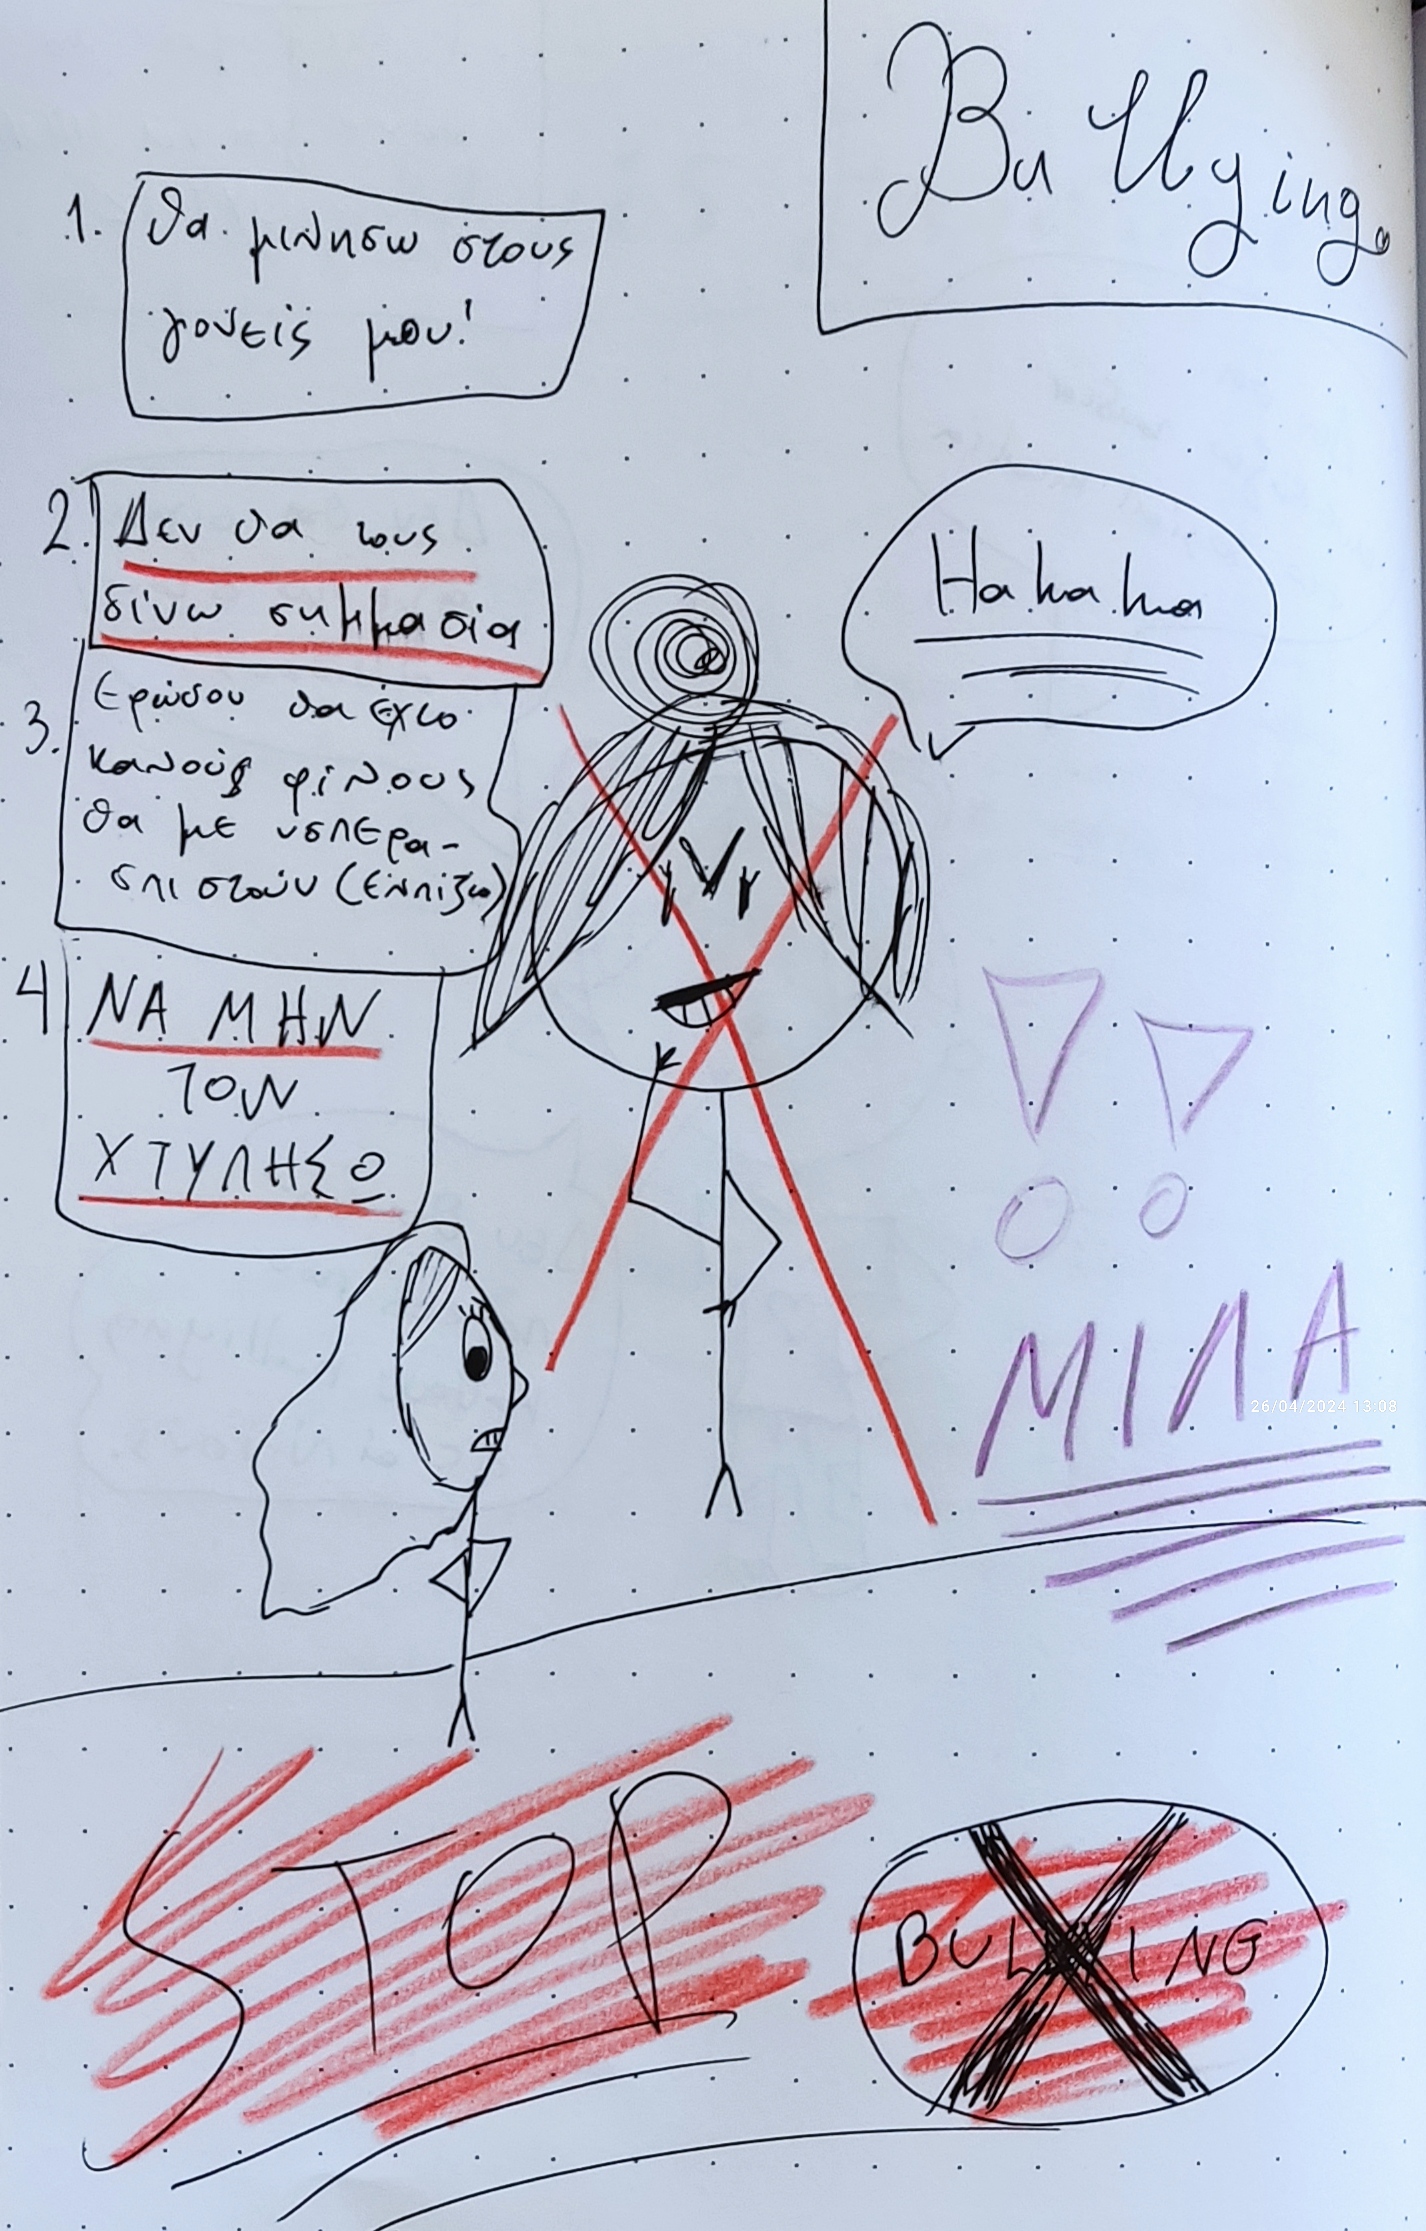 Bullying
1. Θα μιλησω στους
γονείς μου!
2. Δεν θα τους
δίνω σημμασία
Hahaha
3. Εφώσου θα έχω
καλούς φίλους
θα με υσπερα-
σπιστούν (Ελπίζω)
4 ΝΑ ΜΗΝ
ΤΟΝ
ΧΤΥΠΗΣΩ
ΜΙΛΑ
26/04/2024 13:08
STOP
BULLYING